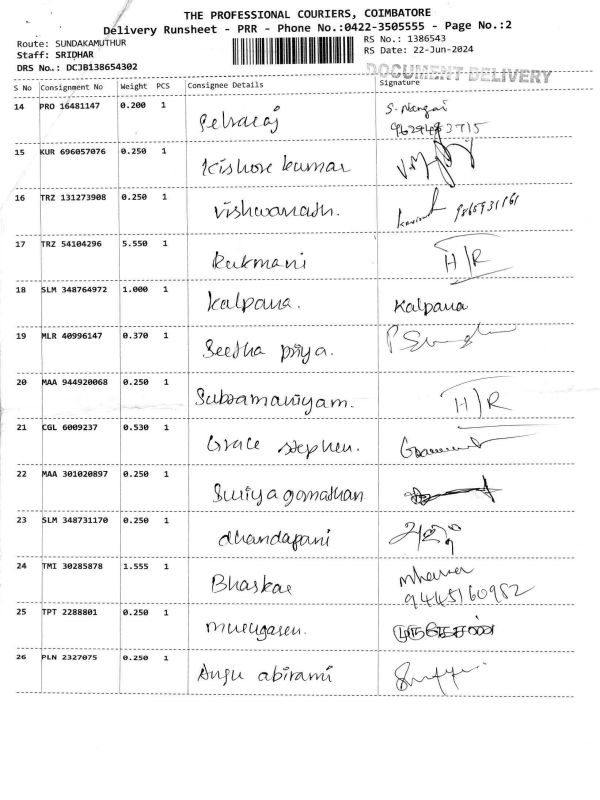 THE PROFESSIONAL COURIERS, COIMBATORE
Delivery Runsheet - PRR - Phone No.:0422-3505555 - Page No.:2
Route: SUNDAKAMUTHUR
RS No.: 1386543
Staff: SRIDHAR
RS Date: 22-Jun-2024
DRS No.: DCJB138654302
DOCUMENT DELIVERY
S No Consignment No Weight PCS Consignee Details Signature
14 PRO 16481147 0.200 1 Selvaraj S. Nangai
15 KUR 696057076 0.250 1 Kishore kumar
16 TRZ 131273908 0.250 1 Vishwanath.
17 TRZ 54104296 5.550 1 Rukmani H/R
18 SLM 348764972 1.000 1 kalpana. Kalpana
19 MLR 40996147 0.370 1 Seetha priya.
20 MAA 944920068 0.250 1 Subramaniyam. H/R
21 CGL 6009237 0.530 1 Grace stephen.
22 MAA 301020897 0.250 1 Suriya gomathan
23 SLM 348731170 0.250 1 dhandapani
24 TMI 30285878 1.555 1 Bhaskar
9445160982
25 TPT 2288801 0.250 1 murugasen. முருகேசன்
26 PLN 2327075 0.250 1 Anju abirami